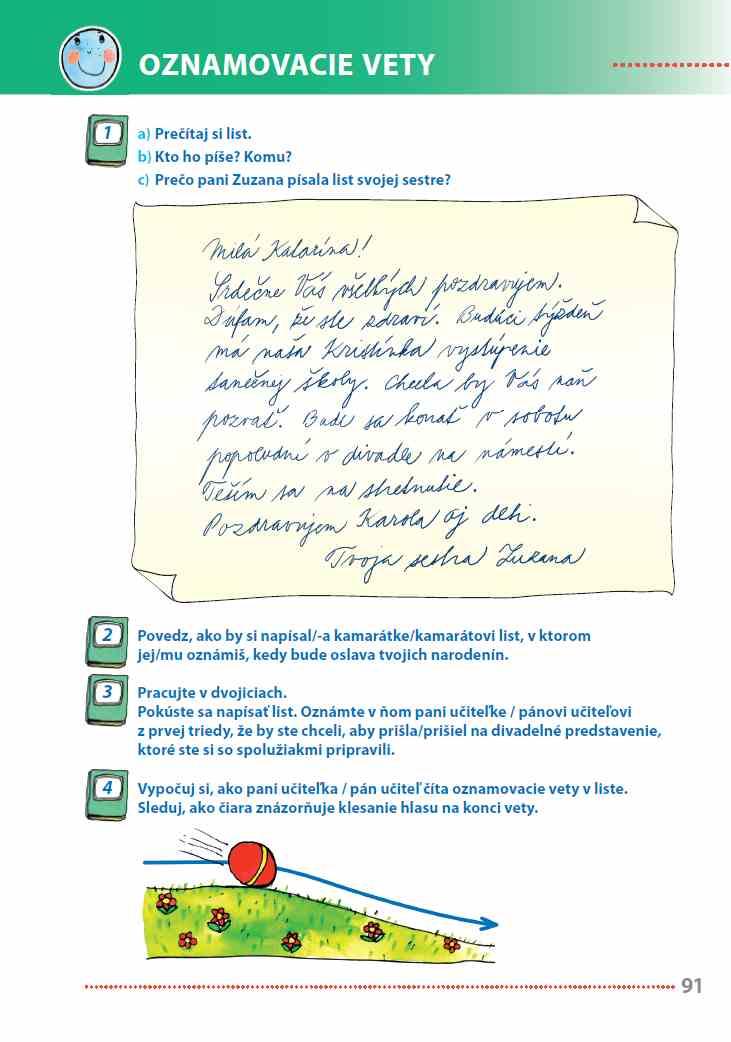 OZNAMOVACIE VETY
1
a) Prečítaj si list.
b) Kto ho píše? Komu?
c) Prečo pani Zuzana písala list svojej sestre?
Milá Katarína!
Srdečne Vás všetkých pozdravujem.
Dúfam, že ste zdraví. Budúci týždeň
má naša Kristínka vystúpenie
tanečnej školy. Chcela by Vás naň
pozvať. Bude sa konať v sobotu
popoludní v divadle na námestí.
Teším sa na stretnutie.
Pozdravujem Karola aj deti.
Tvoja sestra Zuzana
2
Povedz, ako by si napísal/-a kamarátke/kamarátovi list, v ktorom
jej/mu oznámiš, kedy bude oslava tvojich narodenín.
3
Pracujte v dvojiciach.
Pokúste sa napísať list. Oznámte v ňom pani učiteľke / pánovi učiteľovi
z prvej triedy, že by ste chceli, aby prišla/prišiel na divadelné predstavenie,
ktoré ste si so spolužiakmi pripravili.
4
Vypočuj si, ako pani učiteľka / pán učiteľ číta oznamovacie vety v liste.
Sleduj, ako čiara znázorňuje klesanie hlasu na konci vety.
91